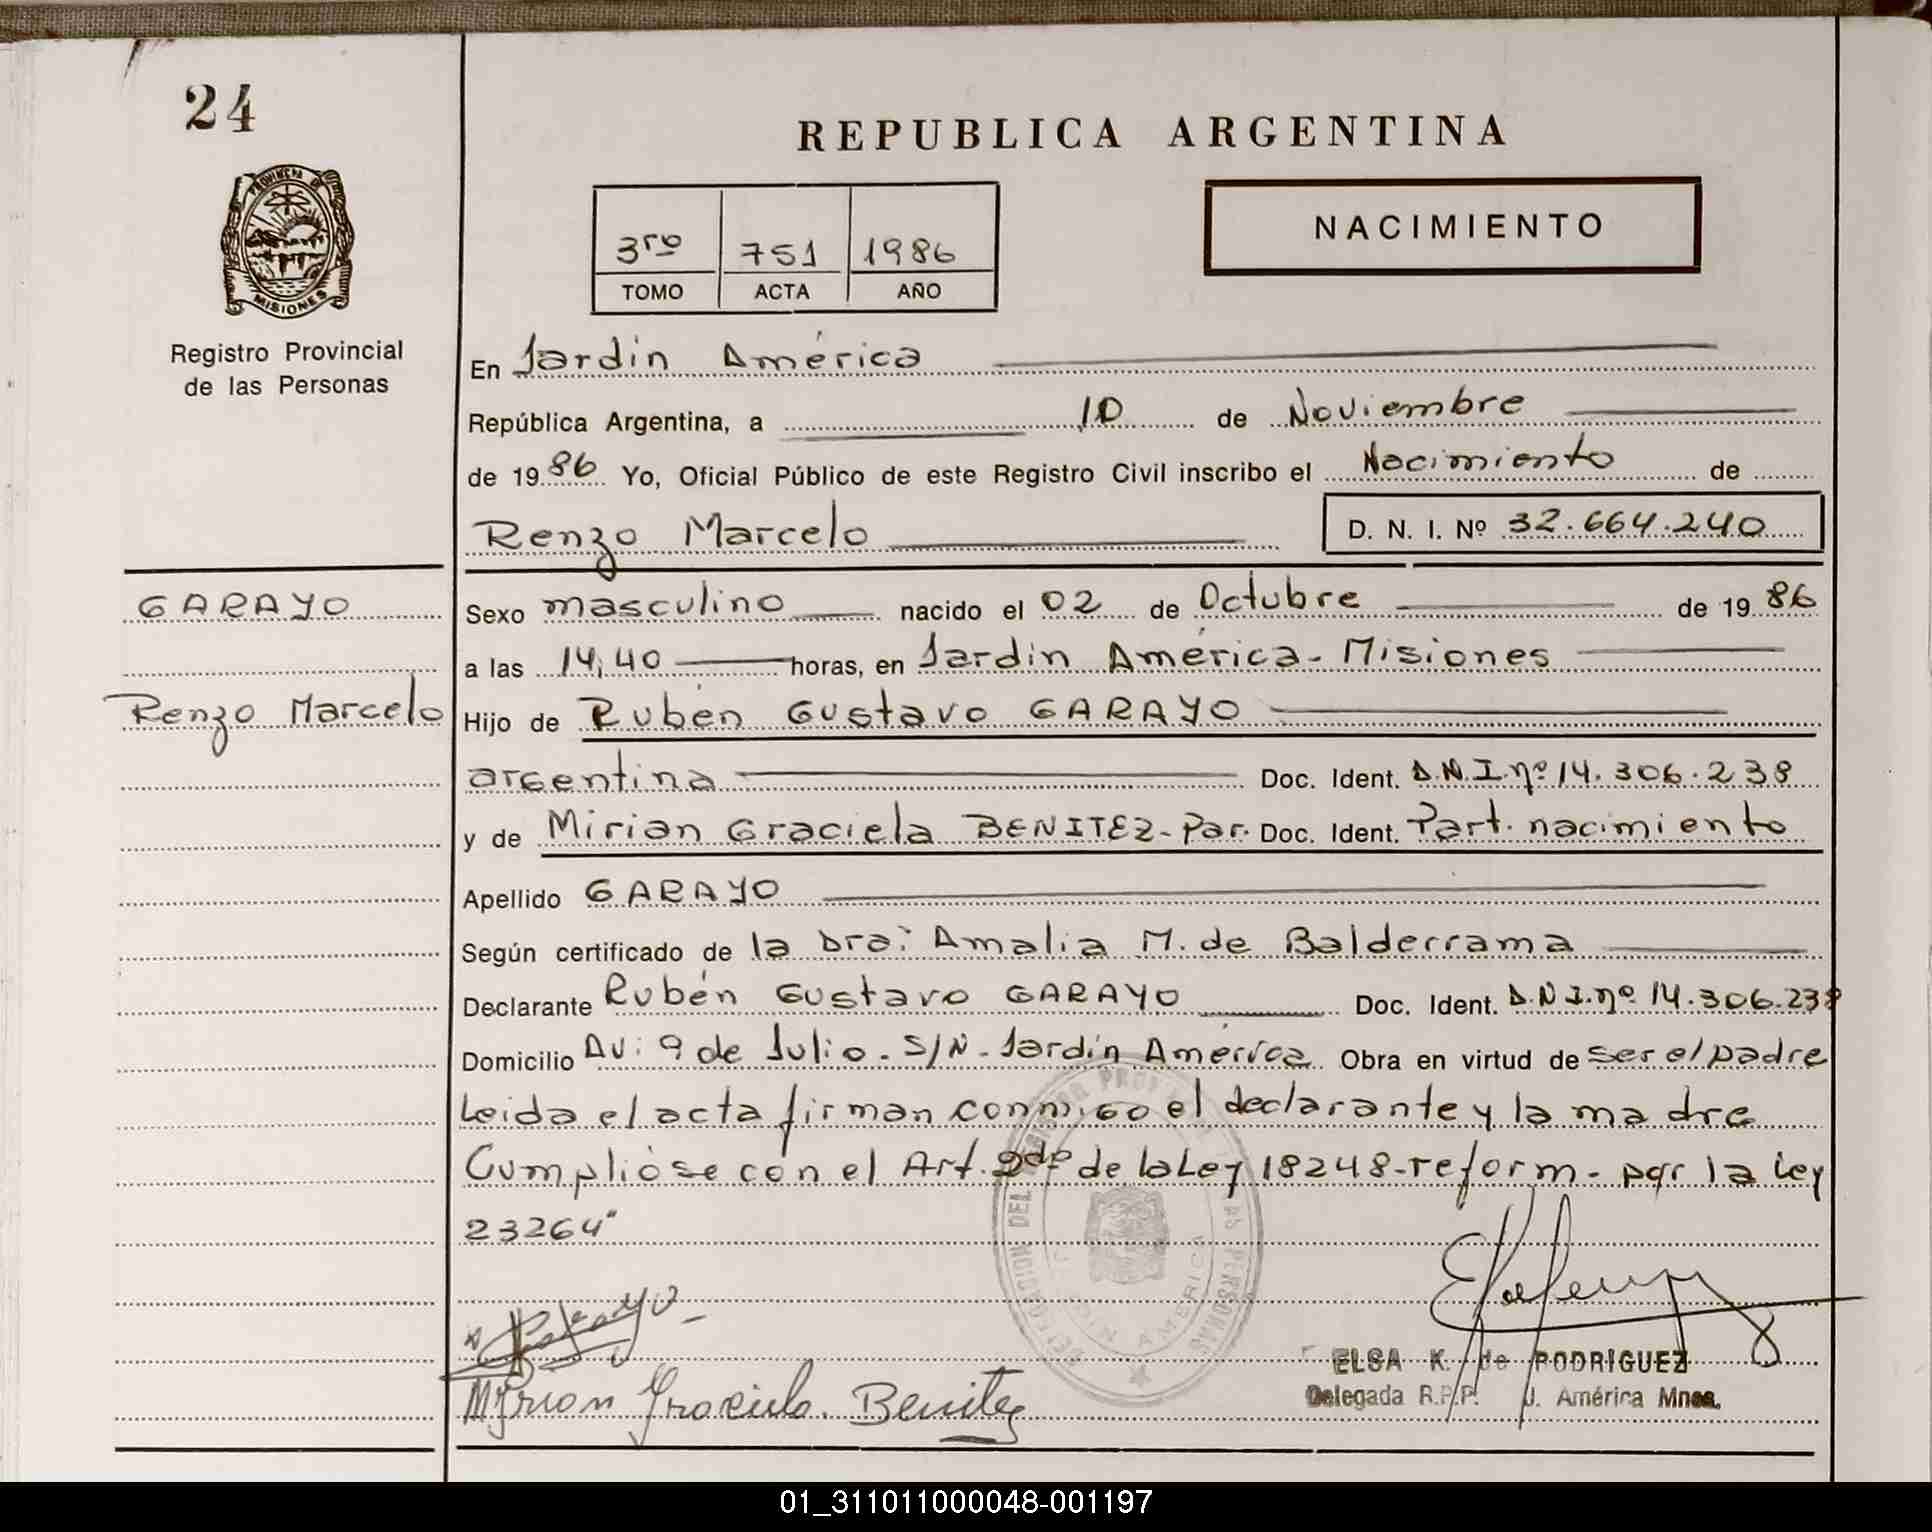 24
REPUBLICA ARGENTINA
PROVINCIA DE
MISIONES
Registro Provincial
de las Personas
3ro 751 1986
TOMO ACTA AÑO
NACIMIENTO
En Jardín América
República Argentina, a 10 de Noviembre
de 1986 Yo, Oficial Público de este Registro Civil inscribo el Nacimiento de
Renzo Marcelo D. N. I. Nº 32.664.240
GARAYO
Renzo Marcelo
Sexo masculino nacido el 02 de Octubre de 1986
a las 14,40 horas, en Jardín América - Misiones
Hijo de Rubén Gustavo GARAYO
argentina Doc. Ident. D.N.I. nº 14.306.238
y de Mirian Graciela BENITEZ - Par. Doc. Ident. Part. nacimiento
Apellido GARAYO
Según certificado de la Dra: Amalia M. de Balderrama
Declarante Rubén Gustavo GARAYO Doc. Ident. D.N.I. nº 14.306.238
Domicilio Av: 9 de Julio - S/N - Jardín América Obra en virtud de ser el padre
Leida el acta firman conmigo el declarante y la madre
Cumplióse con el Art. 2do de la Ley 18248 - reform - por la Ley
23264"
DELEGACION DEL REGISTRO PROVINCIAL DE LAS PERSONAS
JARDIN AMERICA
Garayo
Myrian Graciela Benitez
ELSA K. de RODRIGUEZ
Delegada R.P.P. J. América Mnes.
01_311011000048-001197